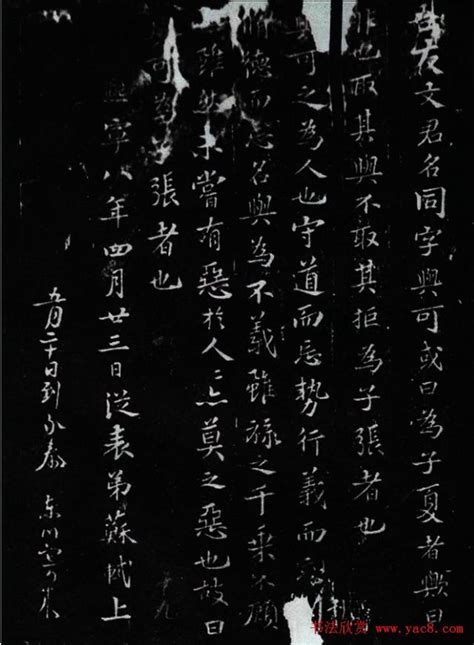 友文君名同字與可或曰為子夏者歟曰
非也取其與不取其拒為子張者也
與可之為人也守道而忘勢行義而忘
德而忘名與為不義雖祿之千乘不顧
雖然未嘗有惡於人〻亦莫之惡也故曰
可為子張者也
熙寧八年四月廿三日從表弟蘇軾上
五月二十日到永泰 東川
书法欣赏 www.yac8.com